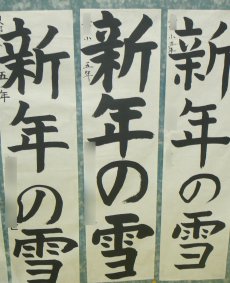 新年の雪
五年
新年の雪
小五年
新年の雪